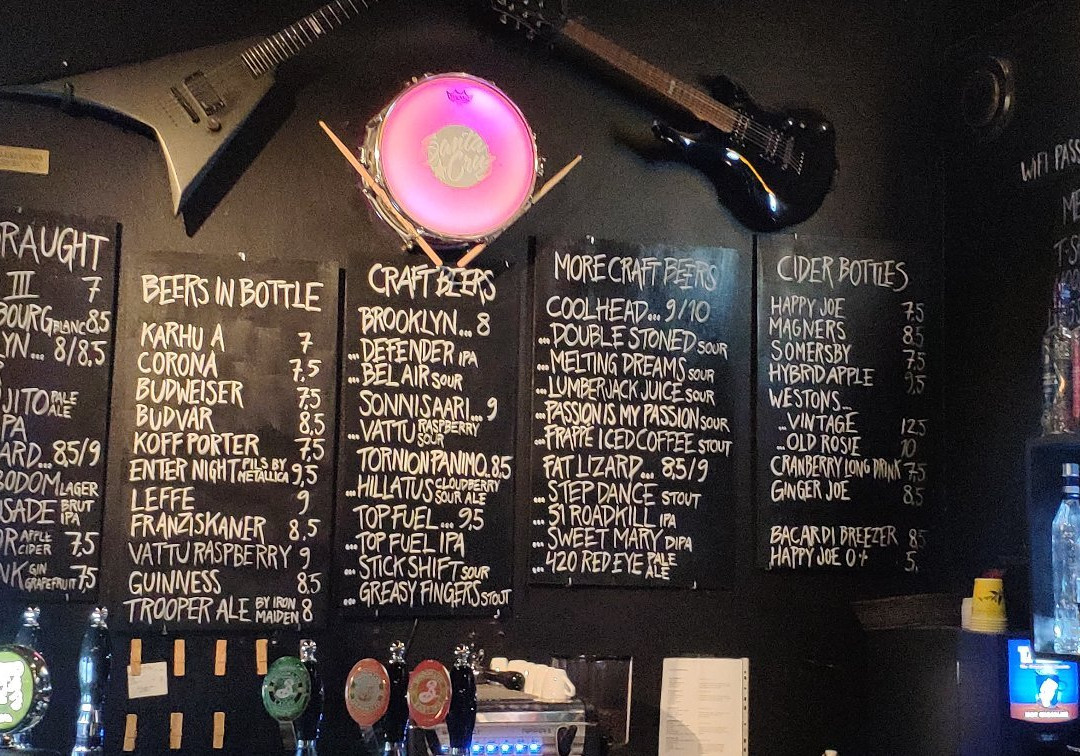 Santa
Cruz
RAUGHT
III 7
BOURG BLANC 8,5
YN... 8/8,5
JITO PALE ALE
PA
ARD... 8,5/9
BODOM LAGER
SADE BRUT IPA
R APPLE CIDER 7,5
NK GIN GRAPEFRUIT 7,5
BEERS IN BOTTLE
KARHU A 7
CORONA 7,5
BUDWEISER 7,5
BUDVAR 8,5
KOFF PORTER 7,5
ENTER NIGHT PILS BY METALLICA 9,5
LEFFE 9
FRANZISKANER 8,5
VATTU RASPBERRY 9
GUINNESS 8,5
TROOPER ALE BY IRON MAIDEN 8
CRAFT BEERS
BROOKLYN... 8
... DEFENDER IPA
... BEL AIR SOUR
SONNISAARI... 9
... VATTU RASPBERRY SOUR
TORNION PANIMO. 8,5
... HILLATUS CLOUDBERRY SOUR ALE
TOP FUEL... 9,5
... TOP FUEL IPA
... STICK SHIFT SOUR
... GREASY FINGERS STOUT
MORE CRAFT BEERS
COOLHEAD... 9/10
... DOUBLE STONED SOUR
... MELTING DREAMS SOUR
... LUMBERJACK JUICE SOUR
... PASSION IS MY PASSION SOUR
... FRAPPE ICED COFFEE STOUT
FAT LIZARD... 8,5/9
... STEP DANCE STOUT
... 51 ROADKILL IPA
... SWEET MARY DIPA
... 420 RED EYE PALE ALE
CIDER BOTTLES
HAPPY JOE 7,5
MAGNERS 8,5
SOMERSBY 7,5
HYBRID APPLE 9,5
WESTONS...
... VINTAGE 12,5
... OLD ROSIE 10
CRANBERRY LONG DRINK 7,5
GINGER JOE 8,5
BACARDI BREEZER 8,5
HAPPY JOE 0% 5,
WIFI PASS
ME
T-S